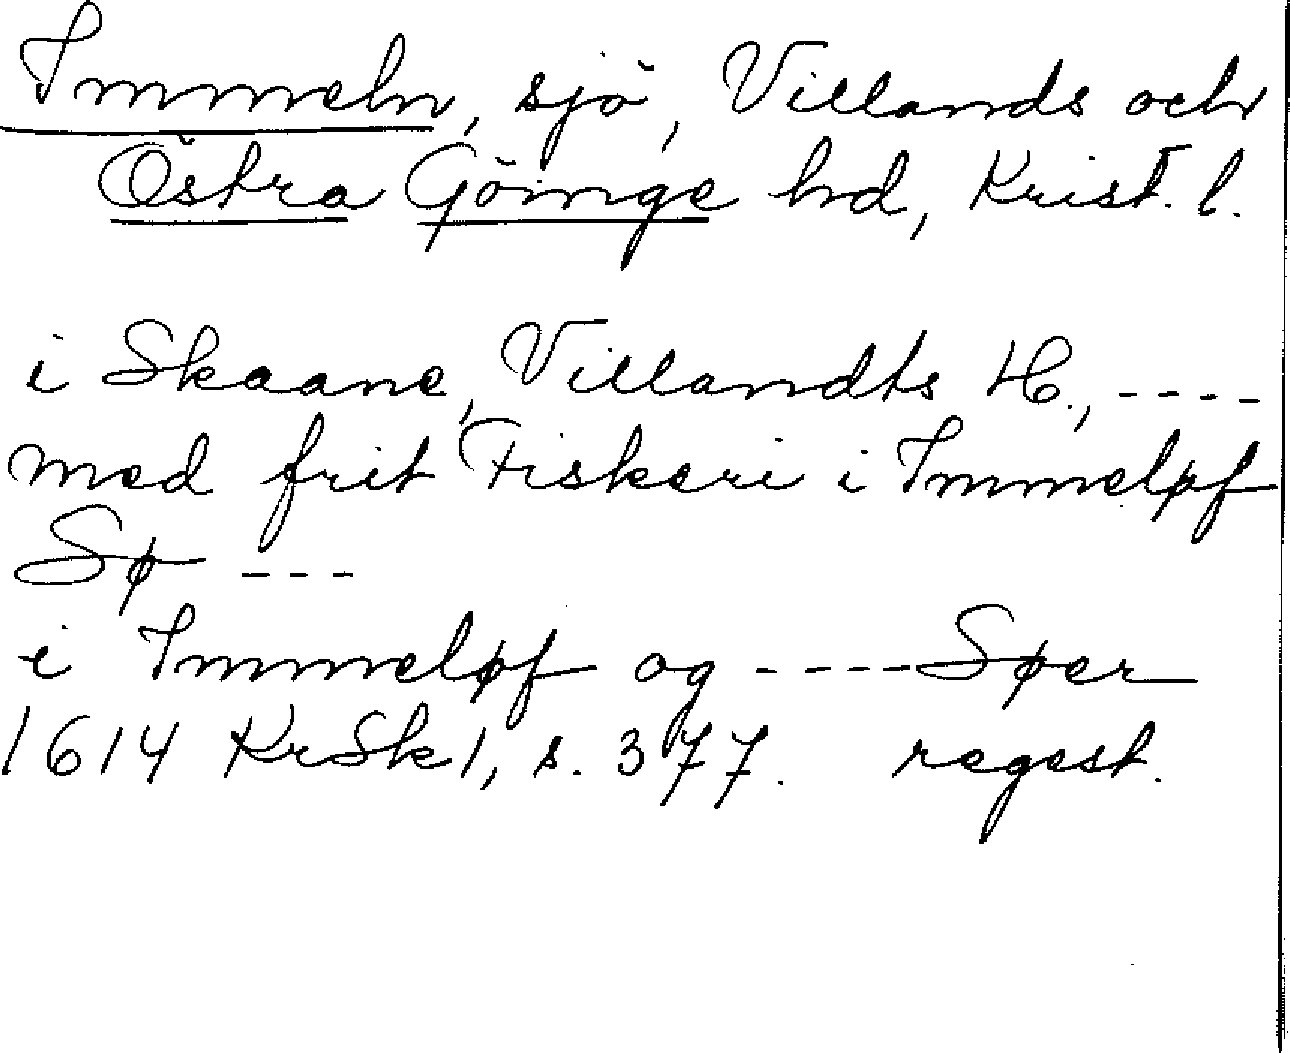 Immeln, sjö, Villands och
Östra Göinge hd, Krist. l.
i Skaane, Villandts H., ----
med frit Fiskeri i Immeløf
Sø ---
i Immeløf og ---- Søer
1614 KrSk 1, s. 377. regest.